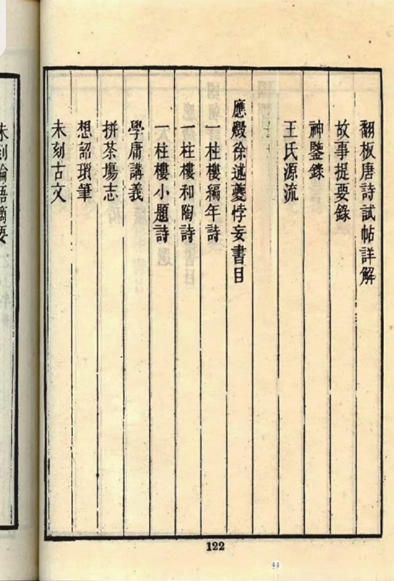 翻板唐詩試帖詳解
故事提要錄
神鑒錄
王氏源流
應燬徐述夔悖妄書目
一柱樓編年詩
一柱樓和陶詩
一柱樓小題詩
學庸講義
拼茶場志
想詒瑣筆
未刻古文
未刻論語摘要
122